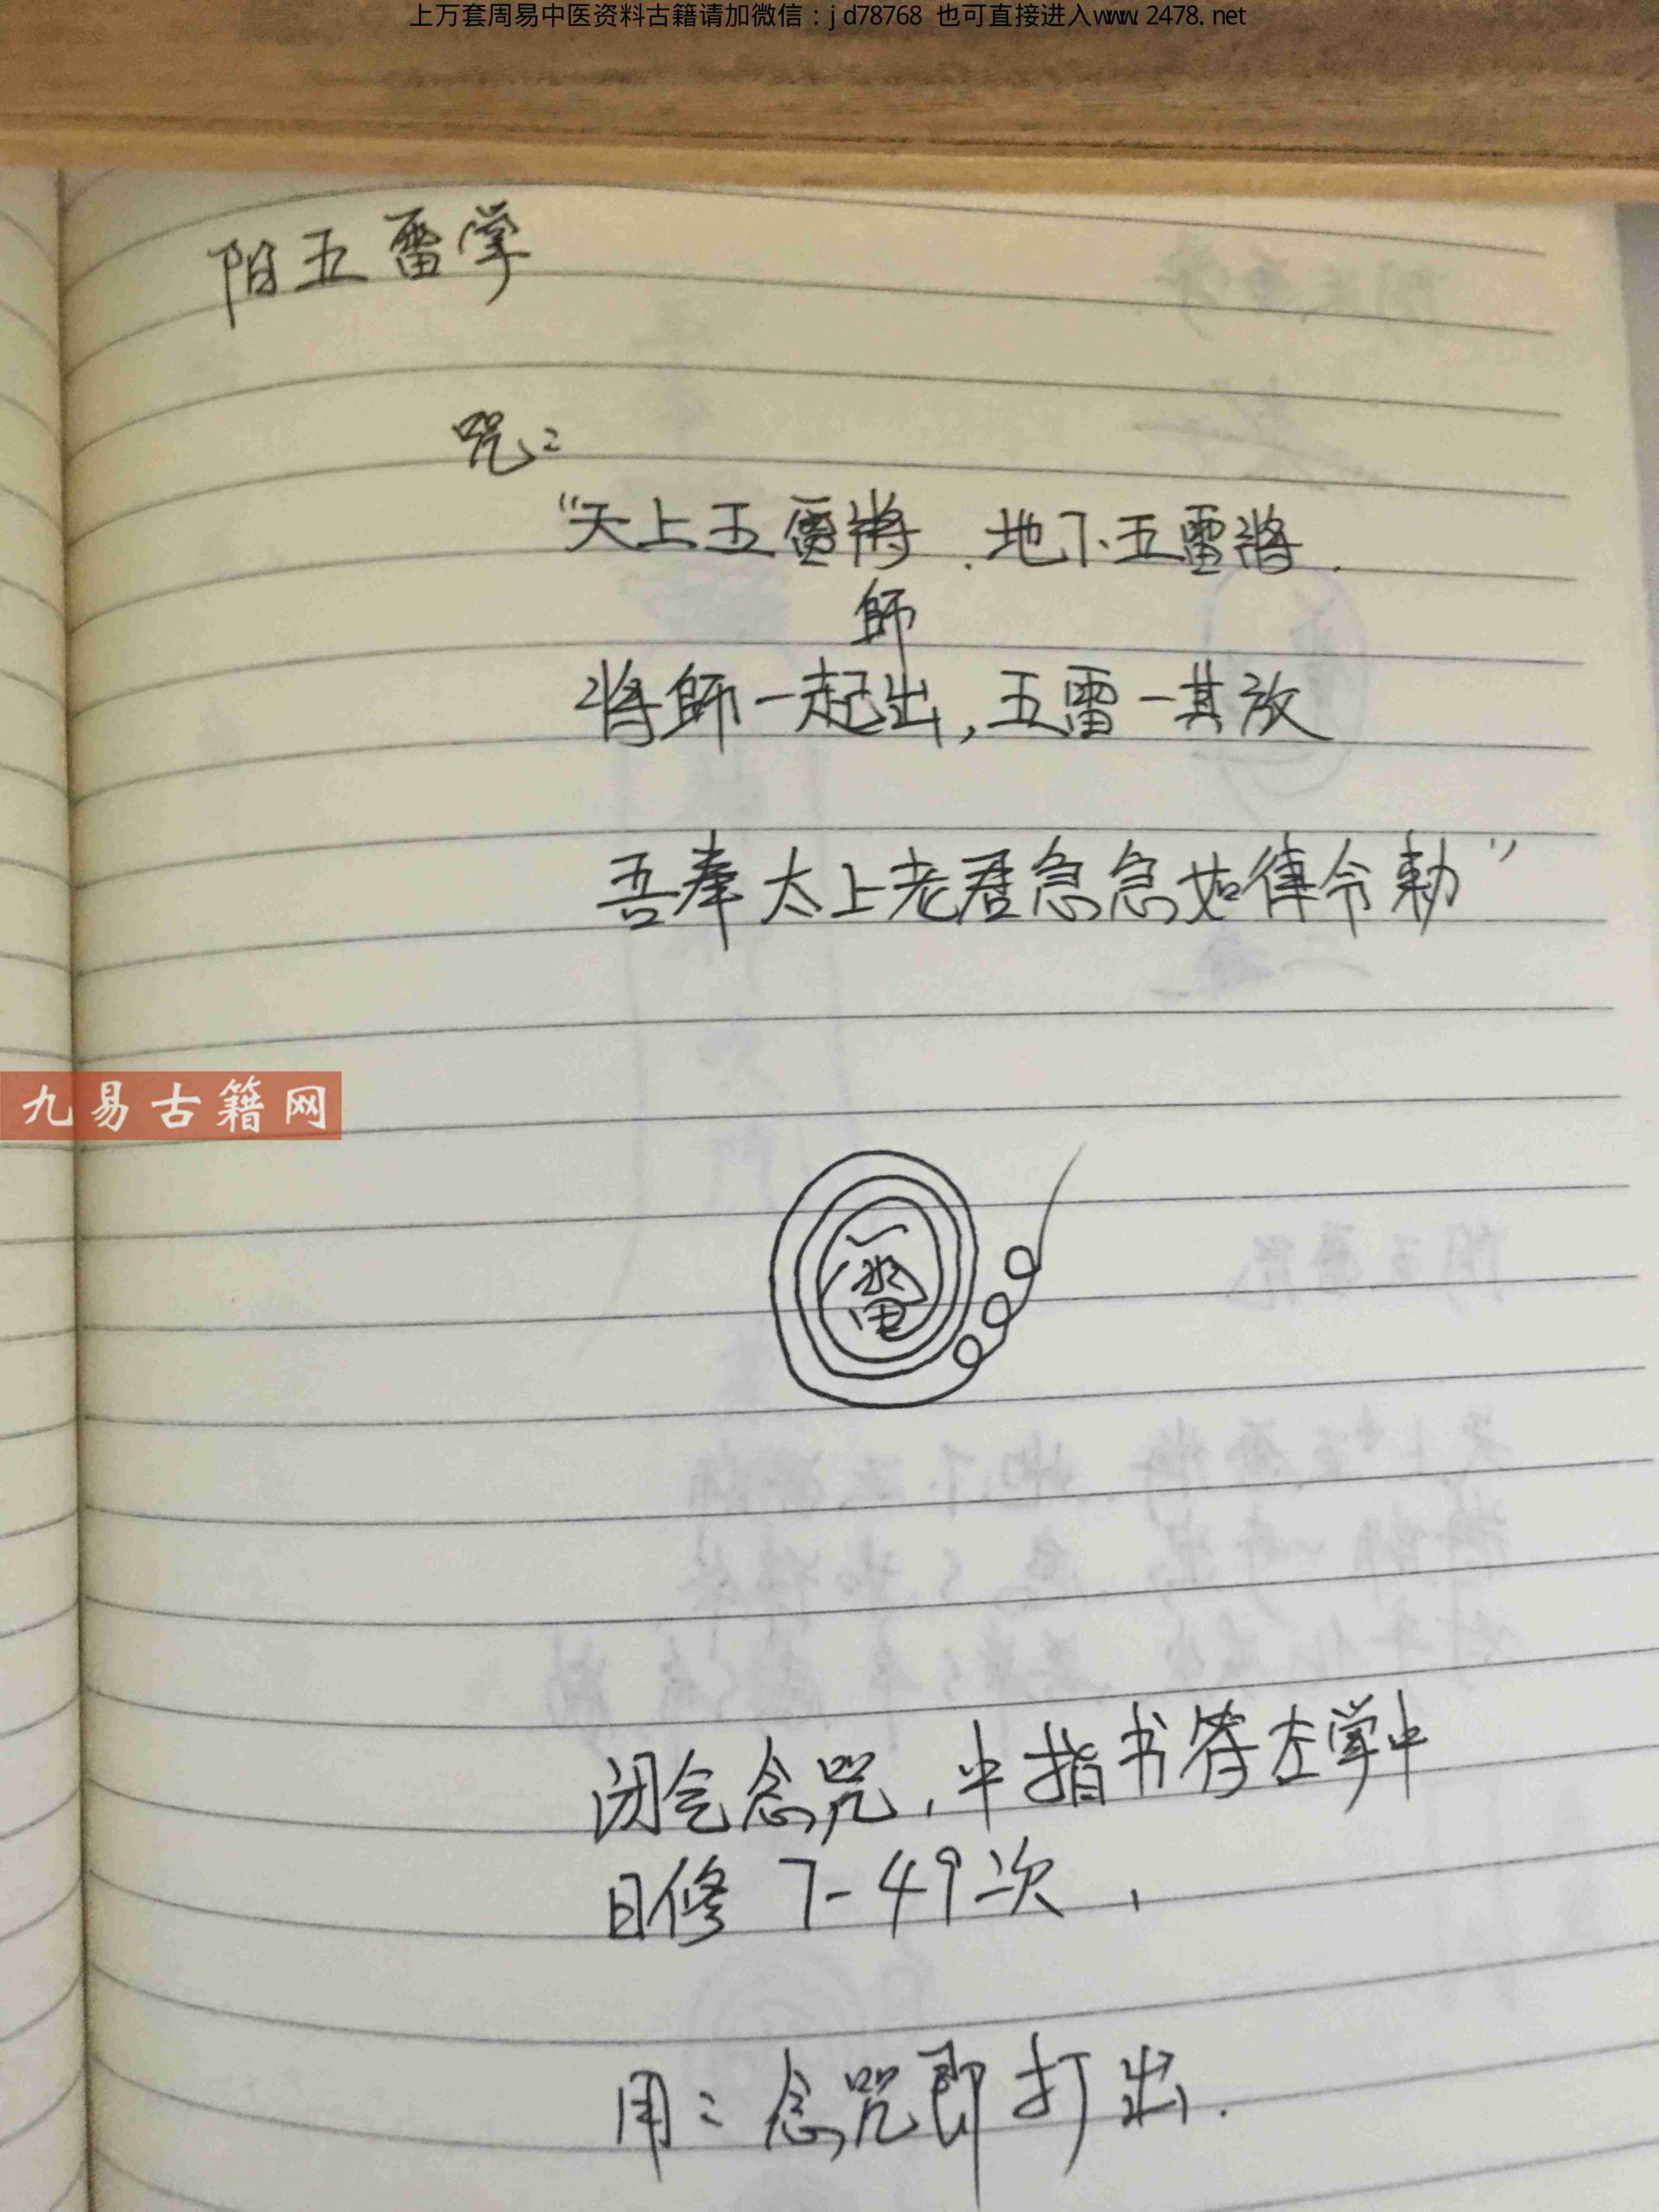 上万套周易中医资料古籍请加微信：jd78768 也可直接进入www.2478.net
阳五雷掌
咒：
“天上五雷将．地下五雷將．
師
将師一起出，五雷一其放
吾奉太上老君急急如律令勅”
九易古籍网
雷
闭气念咒，中指书符左掌中
日修 7-49次，
用：念咒即打出．